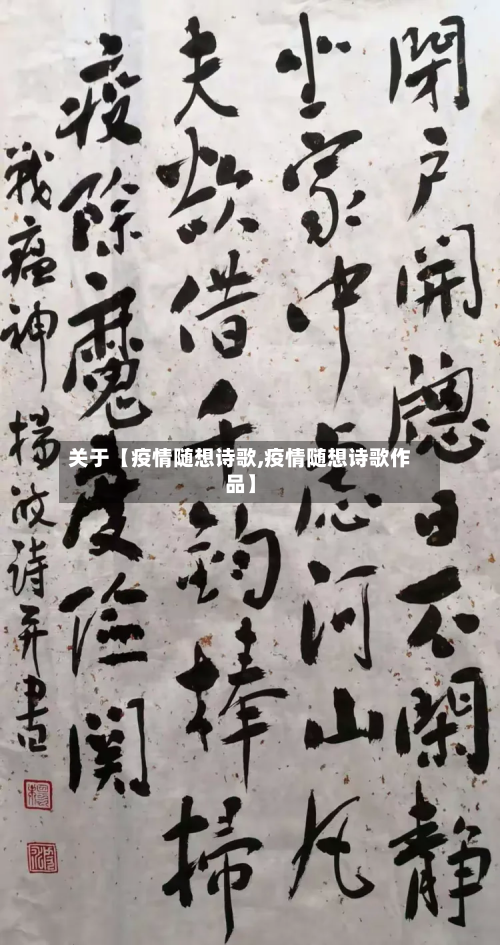 閉戶開窻日不閑靜
坐家中慮河山凡
夫欲借千鈞棒掃
疫除魔度險関
戰瘟神 楊波詩并書
关于【疫情随想诗歌,疫情随想诗歌作
品】